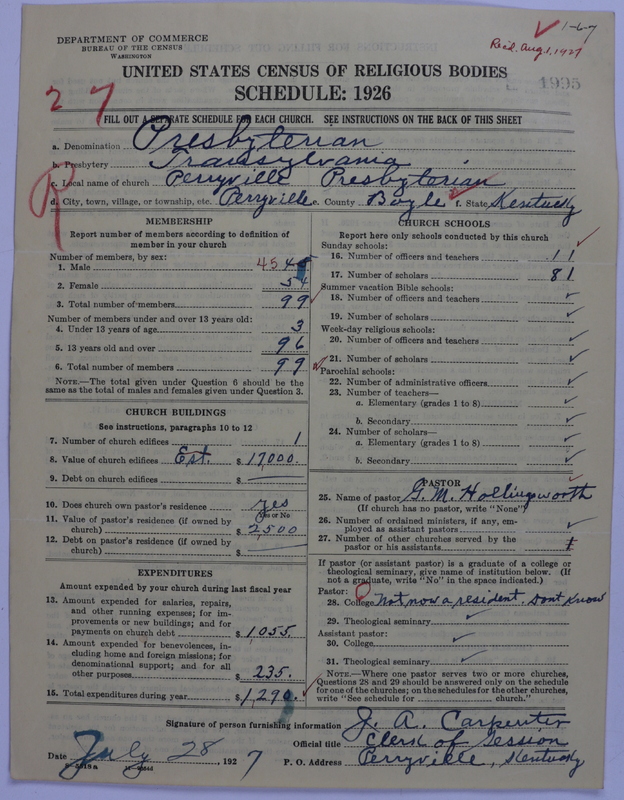 1-6-7
Rec'd. Aug. 1, 1927
DEPARTMENT OF COMMERCE
BUREAU OF THE CENSUS
WASHINGTON
UNITED STATES CENSUS OF RELIGIOUS BODIES
SCHEDULE: 1926
1995
27
FILL OUT A SEPARATE SCHEDULE FOR EACH CHURCH. SEE INSTRUCTIONS ON THE BACK OF THIS SHEET
R
a. Denomination Presbyterian
b. Presbytery Transsylvania
c. Local name of church Perryville Presbyterian
d. City, town, village, or township, etc. Perryville e. County Boyle f. State Kentucky
MEMBERSHIP
Report number of members according to definition of
member in your church
Number of members, by sex:
1. Male 45
2. Female 54
3. Total number of members 99
Number of members under and over 13 years old:
4. Under 13 years of age 3
5. 13 years old and over 96
6. Total number of members 99
NOTE.—The total given under Question 6 should be the
same as the total of males and females given under Question 3.
CHURCH BUILDINGS
See instructions, paragraphs 10 to 12
7. Number of church edifices 1
8. Value of church edifices Est. $ 17,000.
9. Debt on church edifices $
10. Does church own pastor's residence yes
Yes or No
11. Value of pastor's residence (if owned by
church) $ 2,500
12. Debt on pastor's residence (if owned by
church) $
EXPENDITURES
Amount expended by your church during last fiscal year
13. Amount expended for salaries, repairs,
and other running expenses; for im-
provements or new buildings; and for
payments on church debt $ 1055.
14. Amount expended for benevolences, in-
cluding home and foreign missions; for
denominational support; and for all
other purposes $ 235.
15. Total expenditures during year $ 1290.
CHURCH SCHOOLS
Report here only schools conducted by this church
Sunday schools:
16. Number of officers and teachers 11
17. Number of scholars 81
Summer vacation Bible schools:
18. Number of officers and teachers
19. Number of scholars
Week-day religious schools:
20. Number of officers and teachers
21. Number of scholars
Parochial schools:
22. Number of administrative officers
23. Number of teachers—
a. Elementary (grades 1 to 8)
b. Secondary
24. Number of scholars—
a. Elementary (grades 1 to 8)
b. Secondary
PASTOR
25. Name of pastor G. M. Hollingsworth
(If church has no pastor, write "None")
26. Number of ordained ministers, if any, em-
ployed as assistant pastors
27. Number of other churches served by the
pastor or his assistants
If pastor (or assistant pastor) is a graduate of a college or
theological seminary, give name of institution below. (If
not a graduate, write "No" in the space indicated.)
Pastor:
28. College Not now a resident. Dont Know
29. Theological seminary
Assistant pastor:
30. College
31. Theological seminary
NOTE.—Where one pastor serves two or more churches,
Questions 28 and 29 should be answered only on the schedule
for one of the churches; on the schedules for the other churches,
write "See schedule for church."
Signature of person furnishing information J. A. Carpenter
Official title Clerk of Session
Date July 28, 1927 P. O. Address Perryville, Kentucky